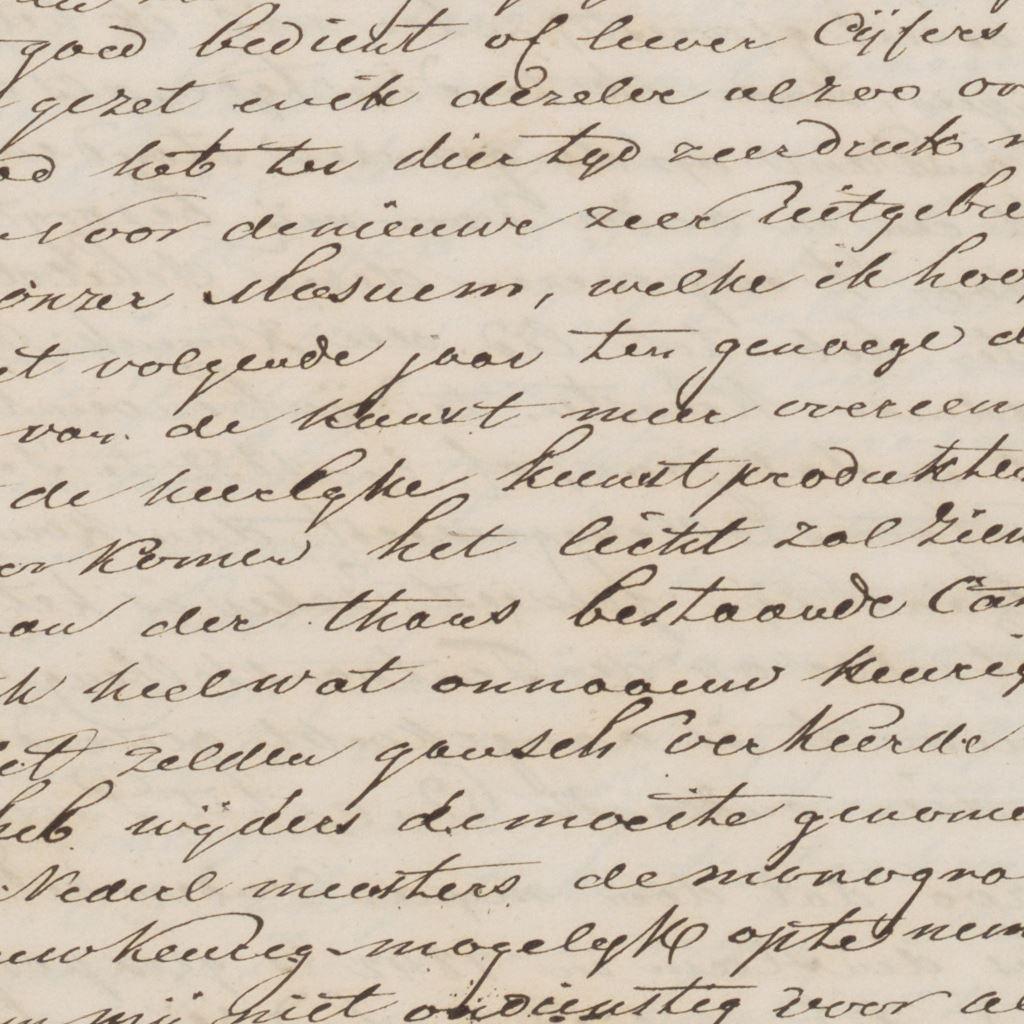 goed bedient of liever Cijfers
gezet en ik dezelve alzoo
heb ter dier tyd zeer druk
Voor de nieuwe zeer uitgebre
onzer Museum, welke ik hoo
volgende jaar ten genoege d
van de kunst meer overeen
de heerlyke kunst produkten
korner het licht zal zien
der thans bestaande Ca
heel wat onnaauw keurig
zelden gansch verkeerde
heb wijders de moeite genome
Nederl meesters de monogra
uwkeurig mogelyk op te nem
mij niet ondienstig voor al